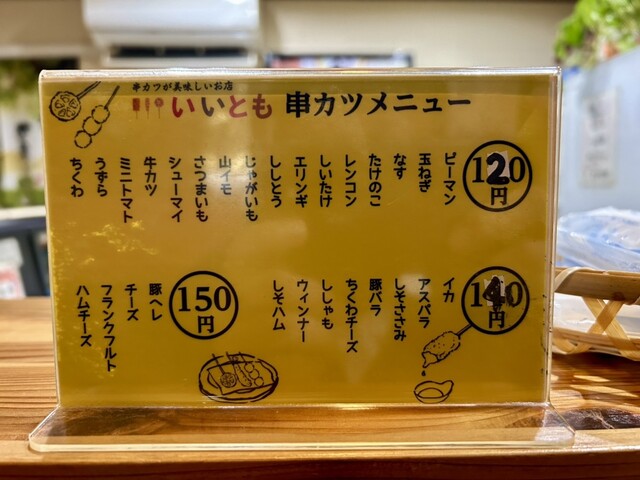 串カツが美味しいお店
いいとも 串カツメニュー
120円
ピーマン
玉ねぎ
なす
たけのこ
レンコン
しいたけ
エリンギ
ししとう
じゃがいも
山イモ
さつまいも
シューマイ
牛カツ
ミニトマト
うずら
ちくわ
140円
イカ
アスパラ
しそささみ
豚バラ
ちくわチーズ
ししゃも
ウィンナー
しそハム
150円
豚ヘレ
チーズ
フランクフルト
ハムチーズ